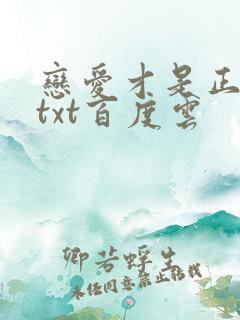 戀愛才是正
txt百度雲
卿若蜉生
未經同意禁止轉載